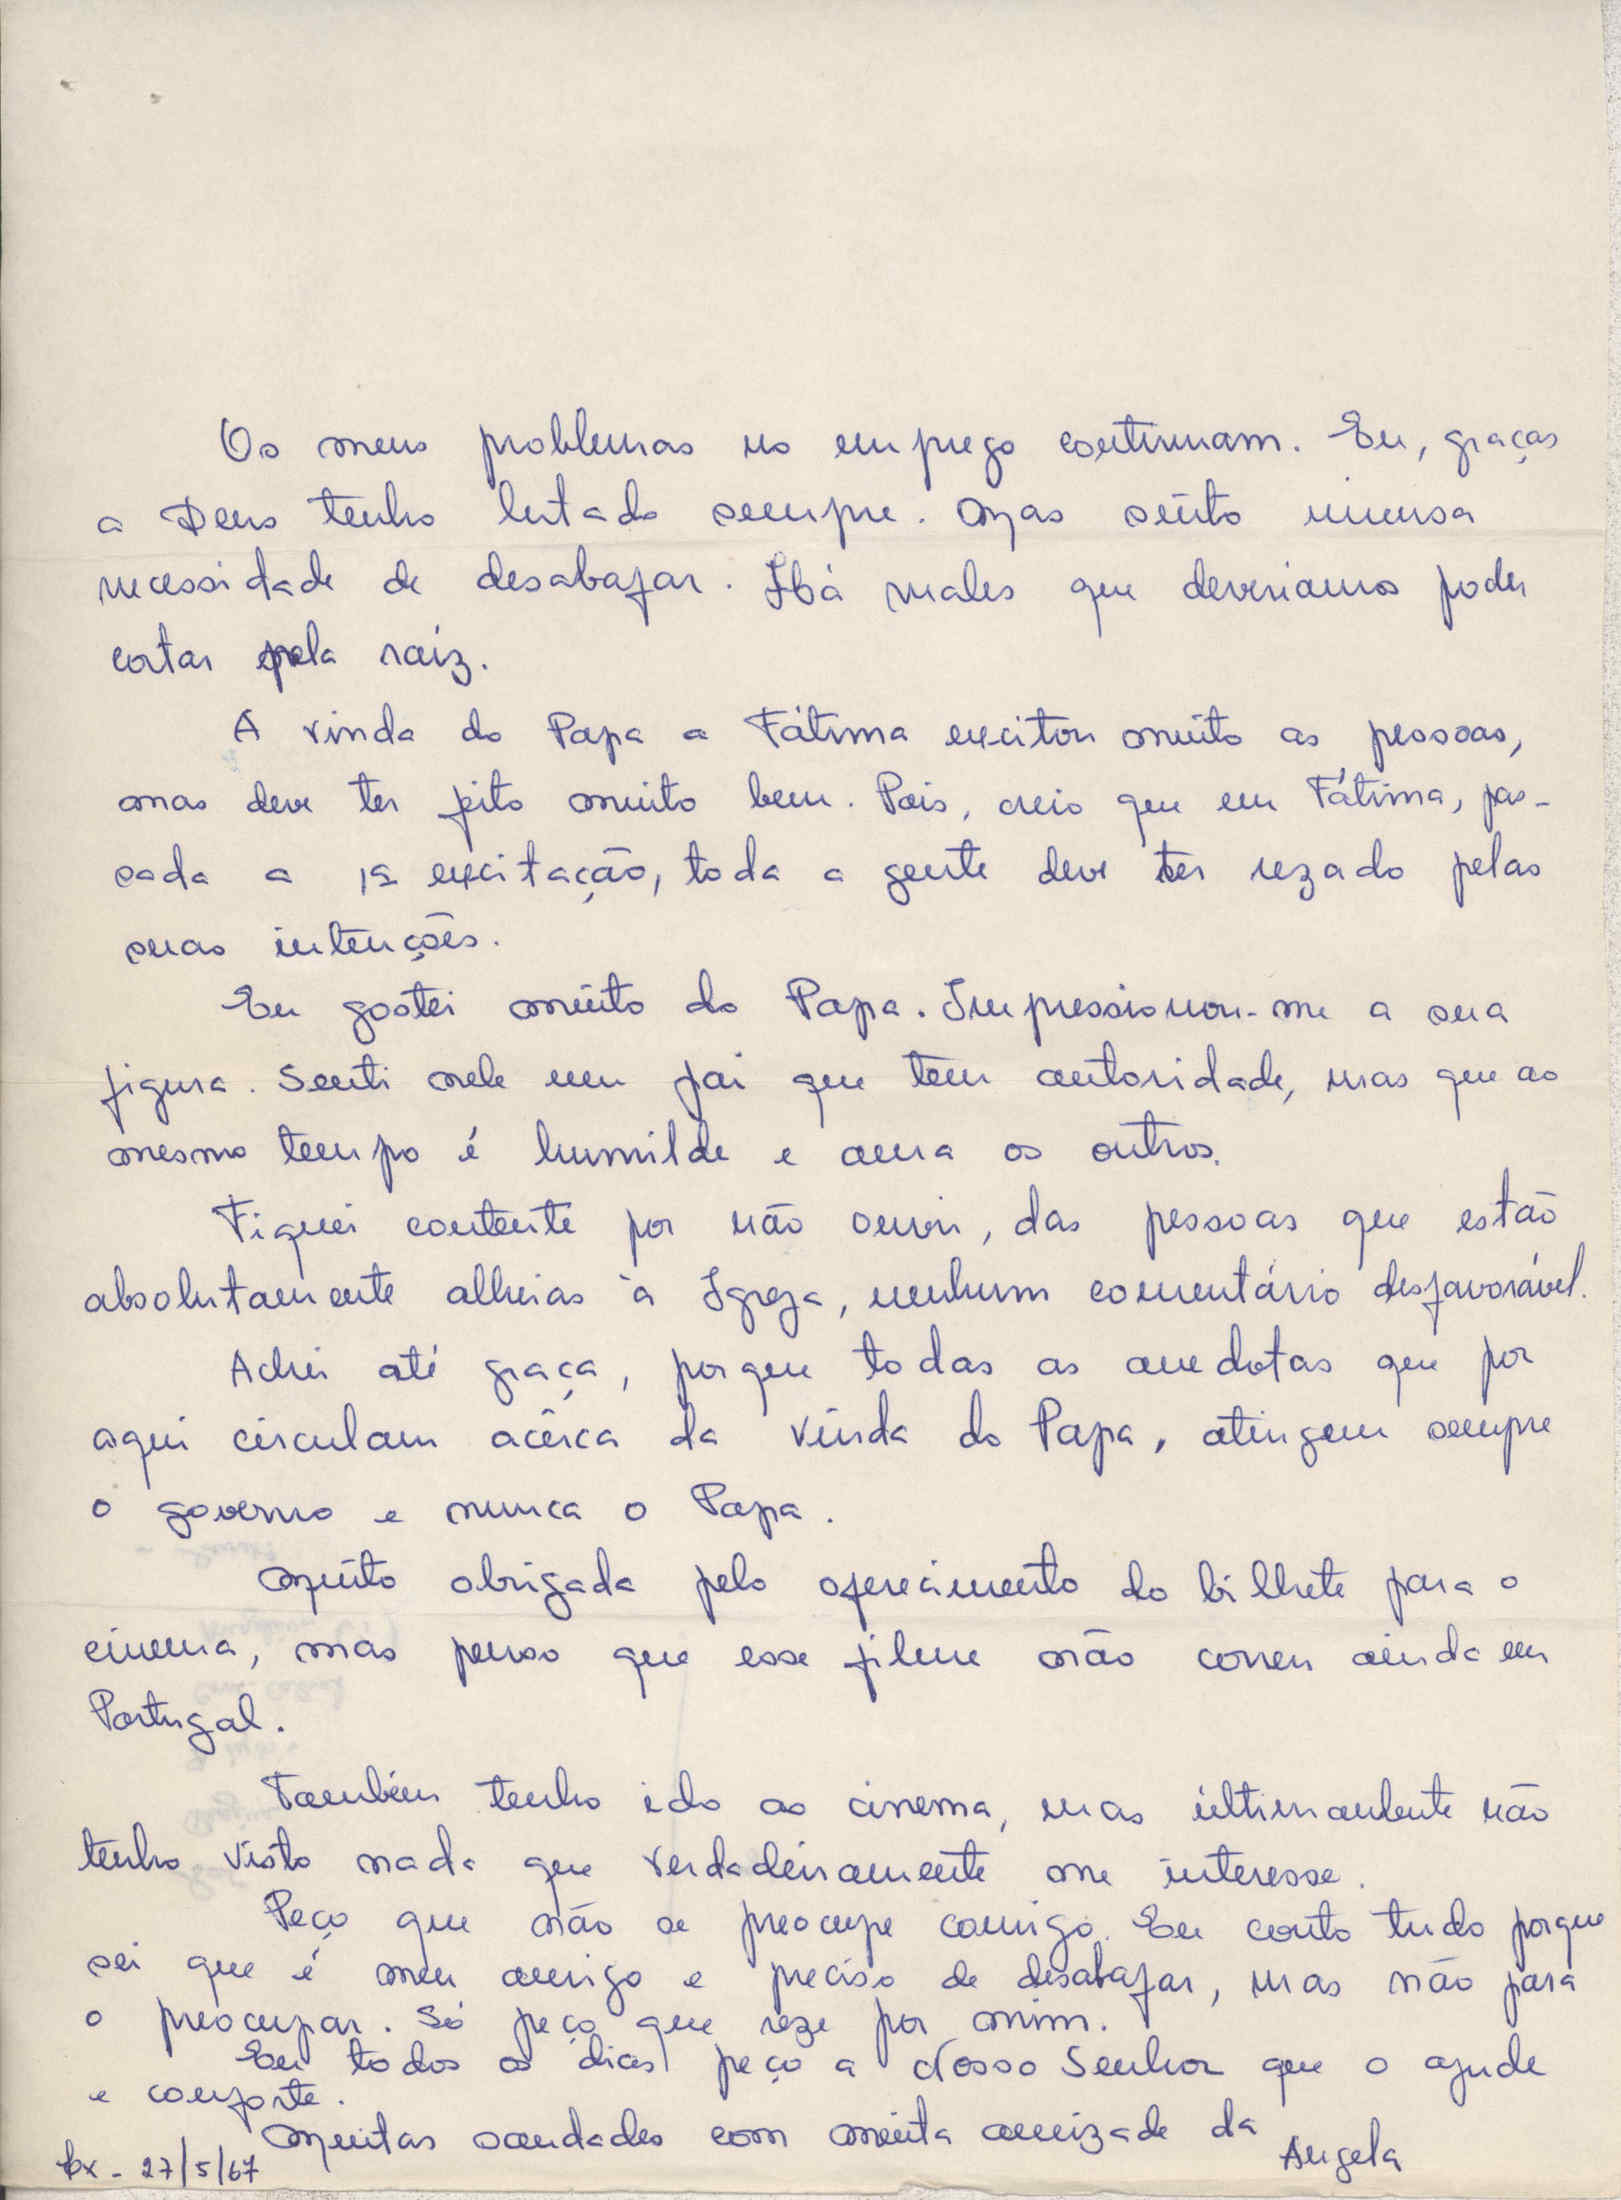 Os meus problemas no emprego continuam. Eu, graças
a Deus tenho lutado sempre. Mas sinto imensa
necessidade de desabafar. Há males que deveriamos poder
cortar pela raíz.
A vinda do Papa a Fátima excitou muito as pessoas,
mas deve ter feito muito bem. Pois, creio que em Fátima, pas-
sada a 1ª excitação, toda a gente deve ter rezado pelas
suas intenções.
Eu gostei muito do Papa. Impressionou-me a sua
figura. Senti nele um pai que tem autoridade, mas que ao
mesmo tempo é humilde e ama os outros.
Fiquei contente por não ouvir, das pessoas que estão
absolutamente alheias à Igreja, nenhum comentário desfavorável.
Achei até graça, porque todas as anedotas que por
aqui circulam acêrca da vinda do Papa, atingem sempre
o governo e nunca o Papa.
Muito obrigada pelo oferecimento do bilhete para o
cinema, mas penso que esse filme não correu ainda em
Portugal.
Também tenho ido ao cinema, mas ùltimamente não
tenho visto nada que verdadeiramente me interesse.
Peço que não se preocupe comigo. Eu conto tudo porque
sei que é meu amigo e preciso de desabafar, mas não para
o preocupar. Só peço que reze por mim.
Eu todos os dias peço a Nosso Senhor que o ajude
e conforte.
Muitas saudades com muita amizade da
Angela
Lx - 27/5/67